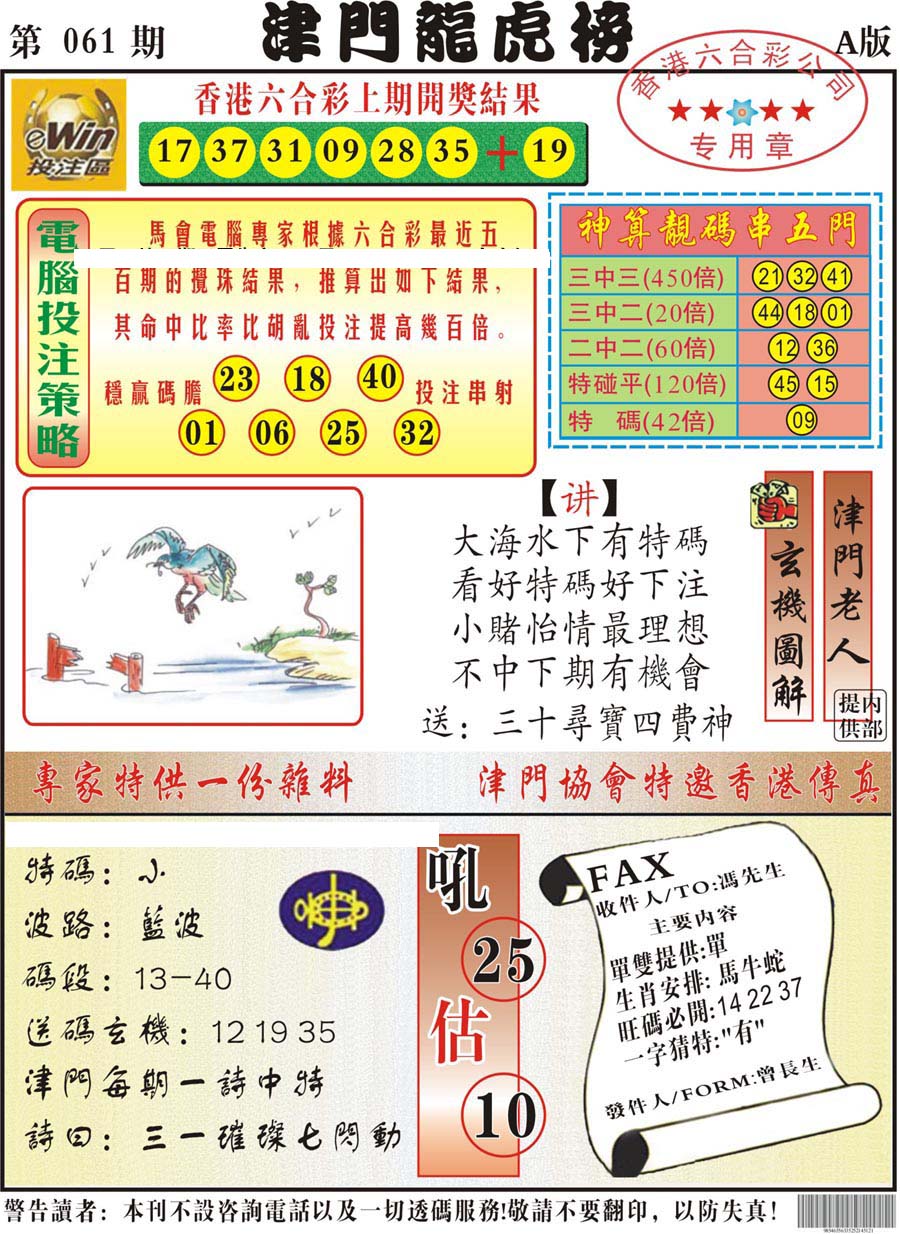 第 061 期
津門龍虎榜
A版
eWin
投注區
香港六合彩上期開獎結果
17 37 31 09 28 35 + 19
香港六合彩公司
专用章
電腦投注策略
馬會電腦專家根據六合彩最近五
百期的攪珠結果，推算出如下結果，
其命中比率比胡亂投注提高幾百倍。
穩贏碼膽 23 18 40 投注串射
01 06 25 32
神算靚碼串五門
三中三(450倍) 21 32 41
三中二(20倍) 44 18 01
二中二(60倍) 12 36
特碰平(120倍) 45 15
特 碼(42倍) 09
【讲】
大海水下有特碼
看好特碼好下注
小賭怡情最理想
不中下期有機會
送：三十尋寶四費神
玄機圖解
津門老人
内部提供
專家特供一份雜料
津門協會特邀香港傳真
特碼：小
波路：藍波
碼段：13-40
送碼玄機：12 19 35
津門每期一詩中特
詩曰：三一璀璨七閃動
吼
25
估
10
FAX
收件人/TO:馮先生
主要内容
單雙提供:單
生肖安排:馬牛蛇
旺碼必開:14 22 37
一字猜特:"有"
發件人/FORM:曾長生
警告讀者：本刊不設咨詢電話以及一切透碼服務!敬請不要翻印，以防失真!